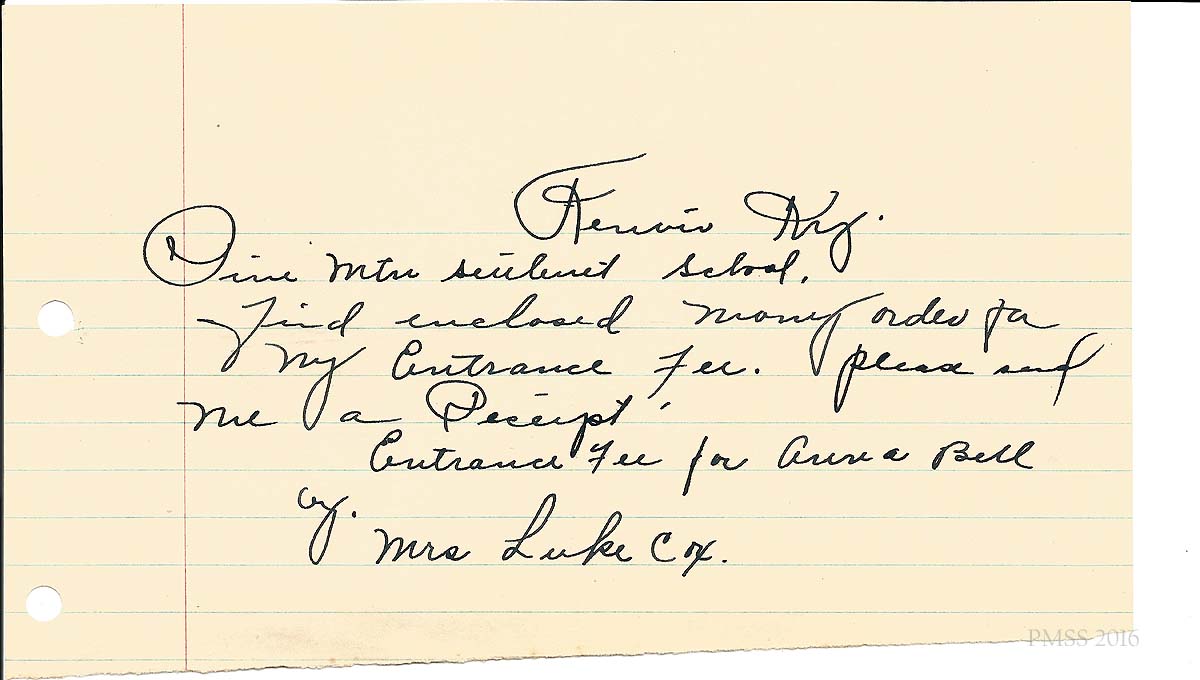 Kenvir Ky.
Pine Mtn settlement School.
Find enclosed money order for
my Entrance Fee. please send
me a Receipt.
Entrance Fee for Anna Bell
by. Mrs Luke Cox.
PMSS 2016